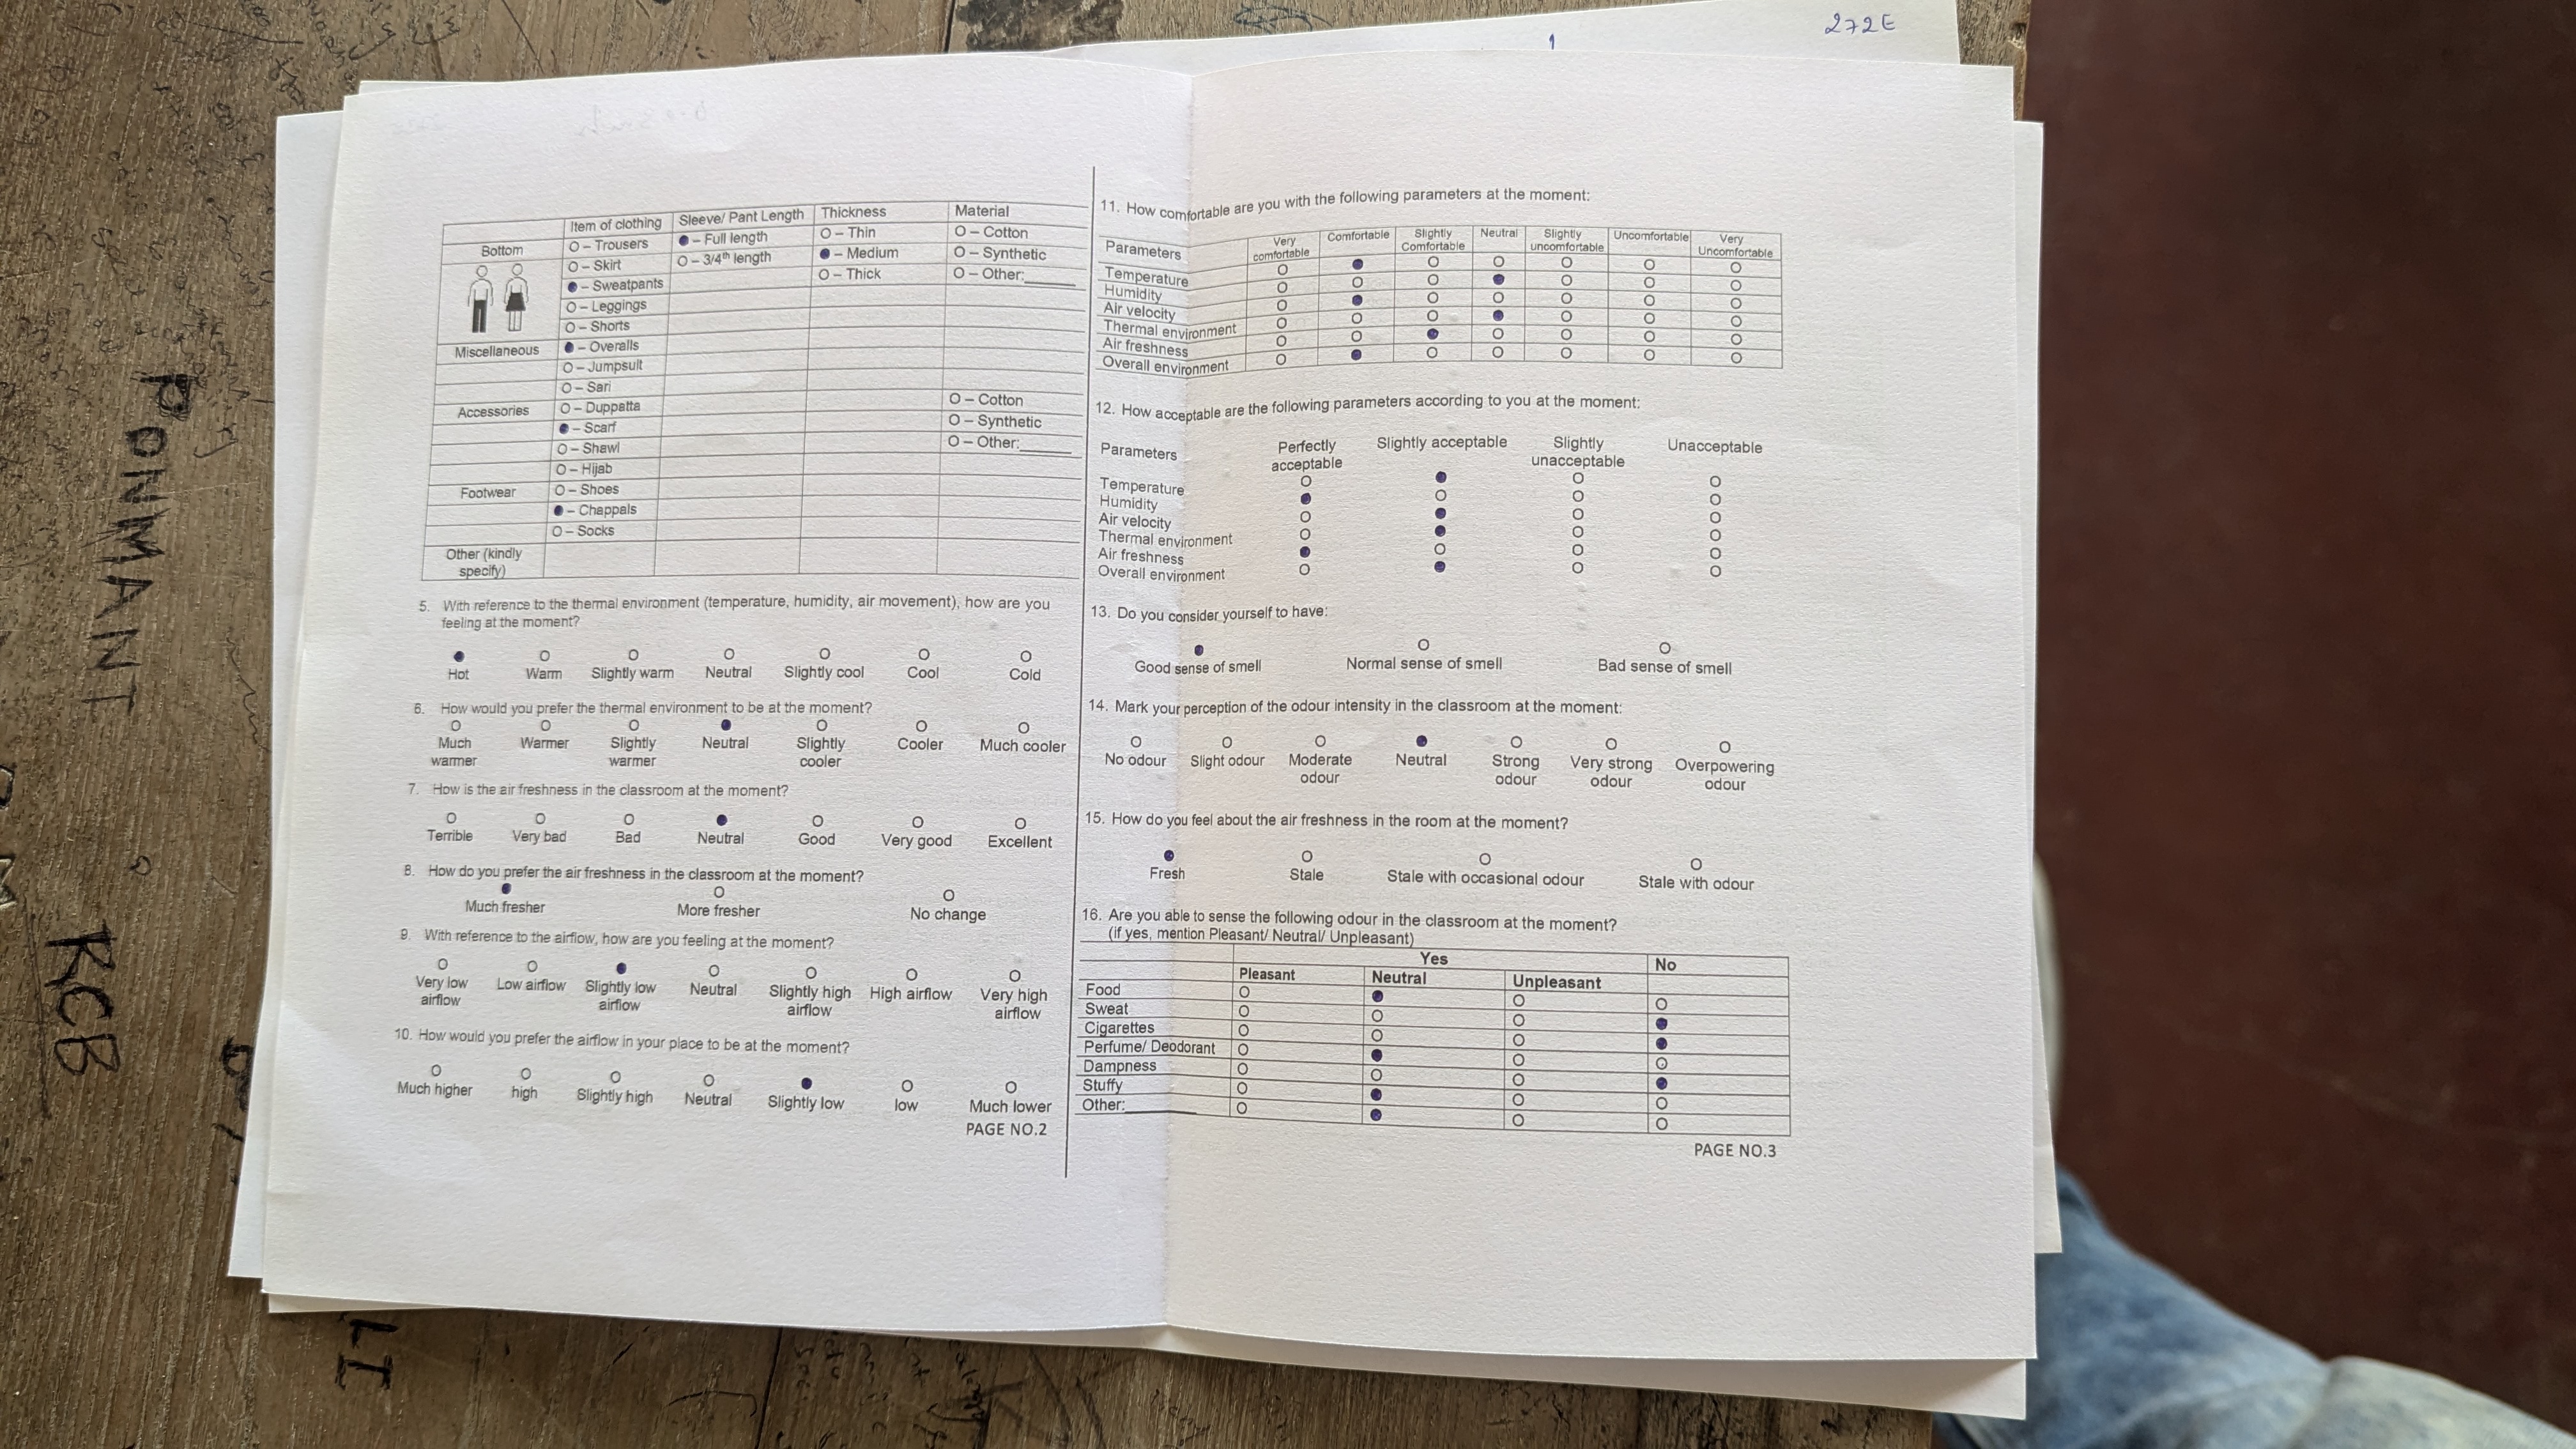 272E
1
Item of clothing Sleeve/ Pant Length Thickness Material
Bottom O – Trousers ● – Full length O – Thin O – Cotton
O – Skirt O – 3/4th length ● – Medium O – Synthetic
● – Sweatpants O – Thick O – Other:______
O – Leggings
O – Shorts
Miscellaneous ● – Overalls
O – Jumpsuit
O – Sari
Accessories O – Duppatta O – Cotton
● – Scarf O – Synthetic
O – Shawl O – Other:______
O – Hijab
Footwear O – Shoes
● – Chappals
O – Socks
Other (kindly
specify)
5. With reference to the thermal environment (temperature, humidity, air movement), how are you
feeling at the moment?
● O O O O O O
Hot Warm Slightly warm Neutral Slightly cool Cool Cold
6. How would you prefer the thermal environment to be at the moment?
O O O ● O O O
Much Warmer Slightly Neutral Slightly Cooler Much cooler
warmer warmer cooler
7. How is the air freshness in the classroom at the moment?
O O O ● O O O
Terrible Very bad Bad Neutral Good Very good Excellent
8. How do you prefer the air freshness in the classroom at the moment?
● O O
Much fresher More fresher No change
9. With reference to the airflow, how are you feeling at the moment?
O O ● O O O O
Very low Low airflow Slightly low Neutral Slightly high High airflow Very high
airflow airflow airflow airflow
10. How would you prefer the airflow in your place to be at the moment?
O O O O ● O O
Much higher high Slightly high Neutral Slightly low low Much lower
PAGE NO.2
11. How comfortable are you with the following parameters at the moment:
Parameters Very Comfortable Slightly Neutral Slightly Uncomfortable Very
comfortable Comfortable uncomfortable Uncomfortable
Temperature O ● O O O O O
Humidity O O O ● O O O
Air velocity O ● O O O O O
Thermal environment O O O ● O O O
Air freshness O O ● O O O O
Overall environment O ● O O O O O
12. How acceptable are the following parameters according to you at the moment:
Parameters Perfectly Slightly acceptable Slightly Unacceptable
acceptable unacceptable
Temperature O ● O O
Humidity ● O O O
Air velocity O ● O O
Thermal environment O ● O O
Air freshness ● O O O
Overall environment O ● O O
13. Do you consider yourself to have:
● O O
Good sense of smell Normal sense of smell Bad sense of smell
14. Mark your perception of the odour intensity in the classroom at the moment:
O O O ● O O O
No odour Slight odour Moderate Neutral Strong Very strong Overpowering
odour odour odour odour
15. How do you feel about the air freshness in the room at the moment?
● O O O
Fresh Stale Stale with occasional odour Stale with odour
16. Are you able to sense the following odour in the classroom at the moment?
(if yes, mention Pleasant/ Neutral/ Unpleasant)
Yes No
Pleasant Neutral Unpleasant
Food O ● O O
Sweat O O O ●
Cigarettes O O O ●
Perfume/ Deodorant O ● O O
Dampness O O O ●
Stuffy O ● O O
Other:________ O ● O O
PAGE NO.3
PONMANT
RCB